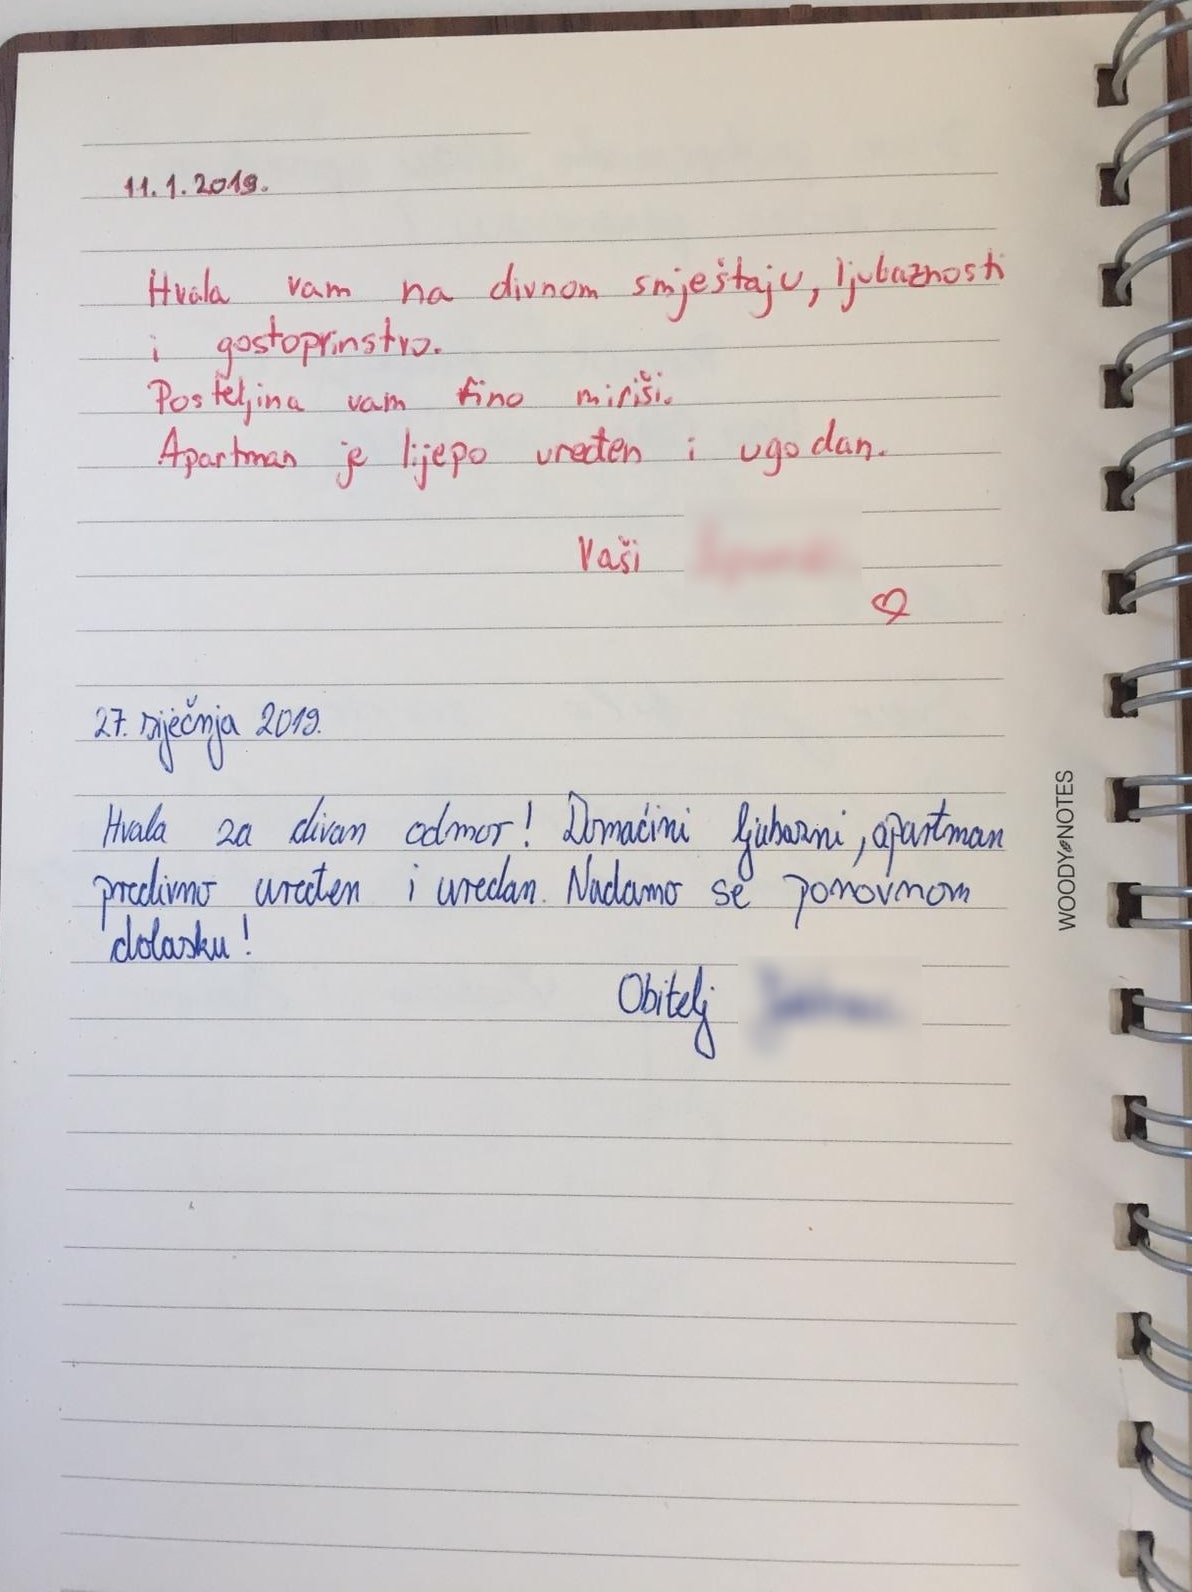 11.1.2019.
Hvala vam na divnom smještaju, ljubaznosti
i gostoprinstvo.
Posteljina vam fino miriši.
Apartman je lijepo uređen i ugodan.
Vaši
27. siječnja 2019.
Hvala za divan odmor! Domaćini ljubazni, apartman
predivno uređen i uredan. Nadamo se ponovnom
dolasku!
Obitelj
WOODY NOTES